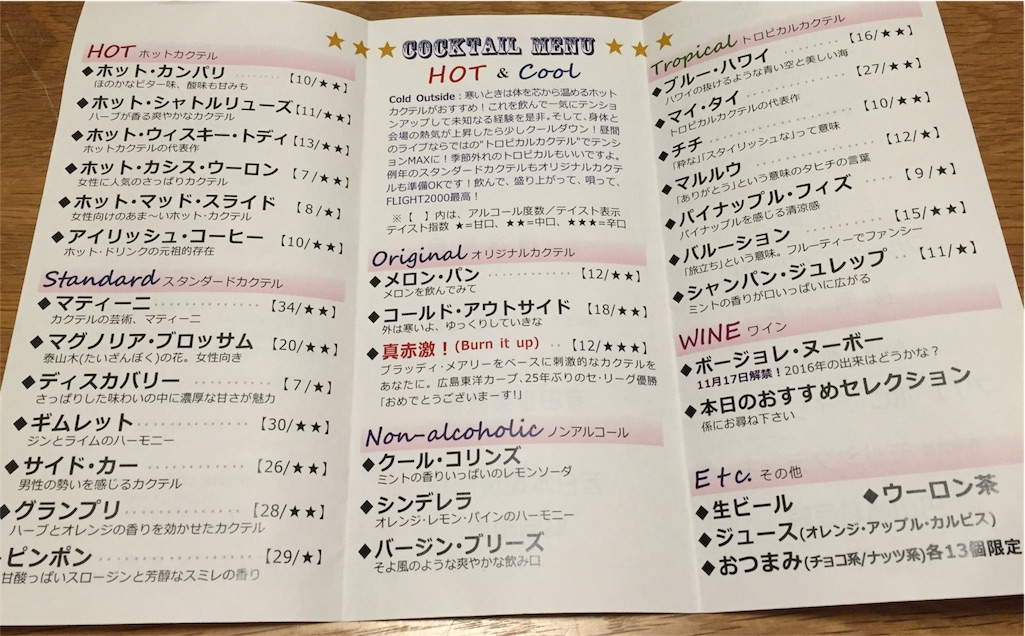 HOT ホットカクテル
◆ホット・カンパリ ········ 【10/★★】
ほのかなビター味、酸味も甘みも
◆ホット・シャトルリューズ【11/★★】
ハーブが香る爽やかなカクテル
◆ホット・ウィスキー・トディ【13/★★】
ホットカクテルの代表作
◆ホット・カシス・ウーロン 【7/★★】
女性に人気のさっぱりカクテル
◆ホット・マッド・スライド 【8/★】
女性向けのあま～いホット・カクテル
◆アイリッシュ・コーヒー ·· 【10/★★】
ホット・ドリンクの元祖的存在
Standard スタンダードカクテル
◆マティーニ ············ 【34/★★】
カクテルの芸術、マティーニ
◆マグノリア・ブロッサム 【20/★★】
泰山木(たいざんぼく)の花。女性向き
◆ディスカバリー ········ 【7/★】
さっぱりした味わいの中に濃厚な甘さが魅力
◆ギムレット ············ 【30/★★】
ジンとライムのハーモニー
◆サイド・カー ·········· 【26/★★】
男性の勢いを感じるカクテル
◆グランプリ ············ 【28/★★】
ハーブとオレンジの香りを効かせたカクテル
ピンポン ················ 【29/★】
甘酸っぱいスロージンと芳醇なスミレの香り
★★★ COCKTAIL MENU ★★★
HOT & Cool
Cold Outside：寒いときは体を芯から温めるホット
カクテルがおすすめ！これを飲んで一気にテンショ
ンアップして未知なる経験を是非。そして、身体と
会場の熱気が上昇したら少しクールダウン！昼間
のライブならではの"トロピカルカクテル"でテンシ
ョンMAXに！季節外れのトロピカルもいいですよ。
例年のスタンダードカクテルもオリジナルカクテ
ルも準備OKです！飲んで、盛り上がって、唄って、
FLIGHT2000最高！
※【 】内は、アルコール度数/テイスト表示
テイスト指数 ★=甘口、★★=中口、★★★=辛口
Original オリジナルカクテル
◆メロン・パン ·········· 【12/★★】
メロンを飲んでみて
◆コールド・アウトサイド 【18/★★】
外は寒いよ、ゆっくりしていきな
◆真赤激！(Burn it up) ·· 【12/★★★】
ブラッディ・メアリーをベースに刺激的なカクテルを
あなたに。広島東洋カープ、25年ぶりのセ・リーグ優勝
「おめでとうございまーす!」
Non-alcoholic ノンアルコール
◆クール・コリンズ
ミントの香りいっぱいのレモンソーダ
◆シンデレラ
オレンジ・レモン・パインのハーモニー
◆バージン・ブリーズ
そよ風のような爽やかな飲み口
Tropical トロピカルカクテル
◆ブルー・ハワイ ········ 【16/★★】
ハワイの抜けるような青い空と美しい海
◆マイ・タイ ············ 【27/★★】
トロピカルカクテルの代表作
◆チチ ·················· 【10/★★】
「粋な」「スタイリッシュな」って意味
◆マルルウ ·············· 【12/★】
「ありがとう」という意味のタヒチの言葉
◆パイナップル・フィズ ···· 【9/★】
パイナップルを感じる清涼感
◆バルーション ·········· 【15/★★】
「旅立ち」という意味。フルーティーでファンシー
◆シャンパン・ジュレップ ·· 【11/★】
ミントの香りが口いっぱいに広がる
WINE ワイン
◆ボージョレ・ヌーボー
11月17日解禁！2016年の出来はどうかな？
◆本日のおすすめセレクション
係にお尋ね下さい
Etc. その他
◆生ビール ◆ウーロン茶
◆ジュース(オレンジ・アップル・カルピス)
◆おつまみ(チョコ系/ナッツ系)各13個限定